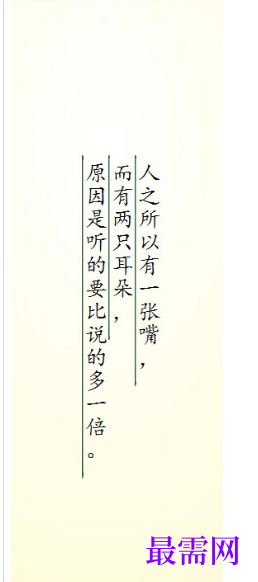 人之所以有一张嘴，
而有两只耳朵，
原因是听的要比说的多一倍。
最需网